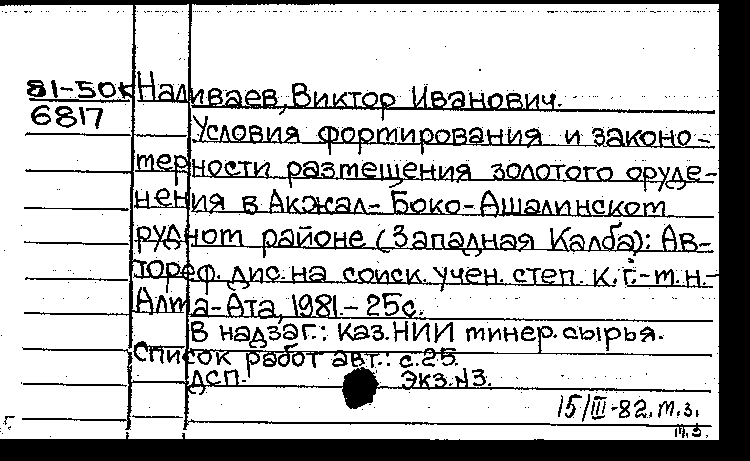 81-50К Наливаев, Виктор Иванович.
6817
Условия формирования и законо-
мерности размещения золотого оруде-
нения в Акжал-Боко-Ашалинском
рудном районе (Западная Калба): Ав-
тореф. дис. на соиск. учен. степ. к.г.-м.н.-
Алма-Ата, 1981.-25с.
В надзаг.: Каз.НИИ минер.сырья.
Список работ авт.: с.25.
ДСП. Экз.№3.
15/III-82.м.з.
м.з.